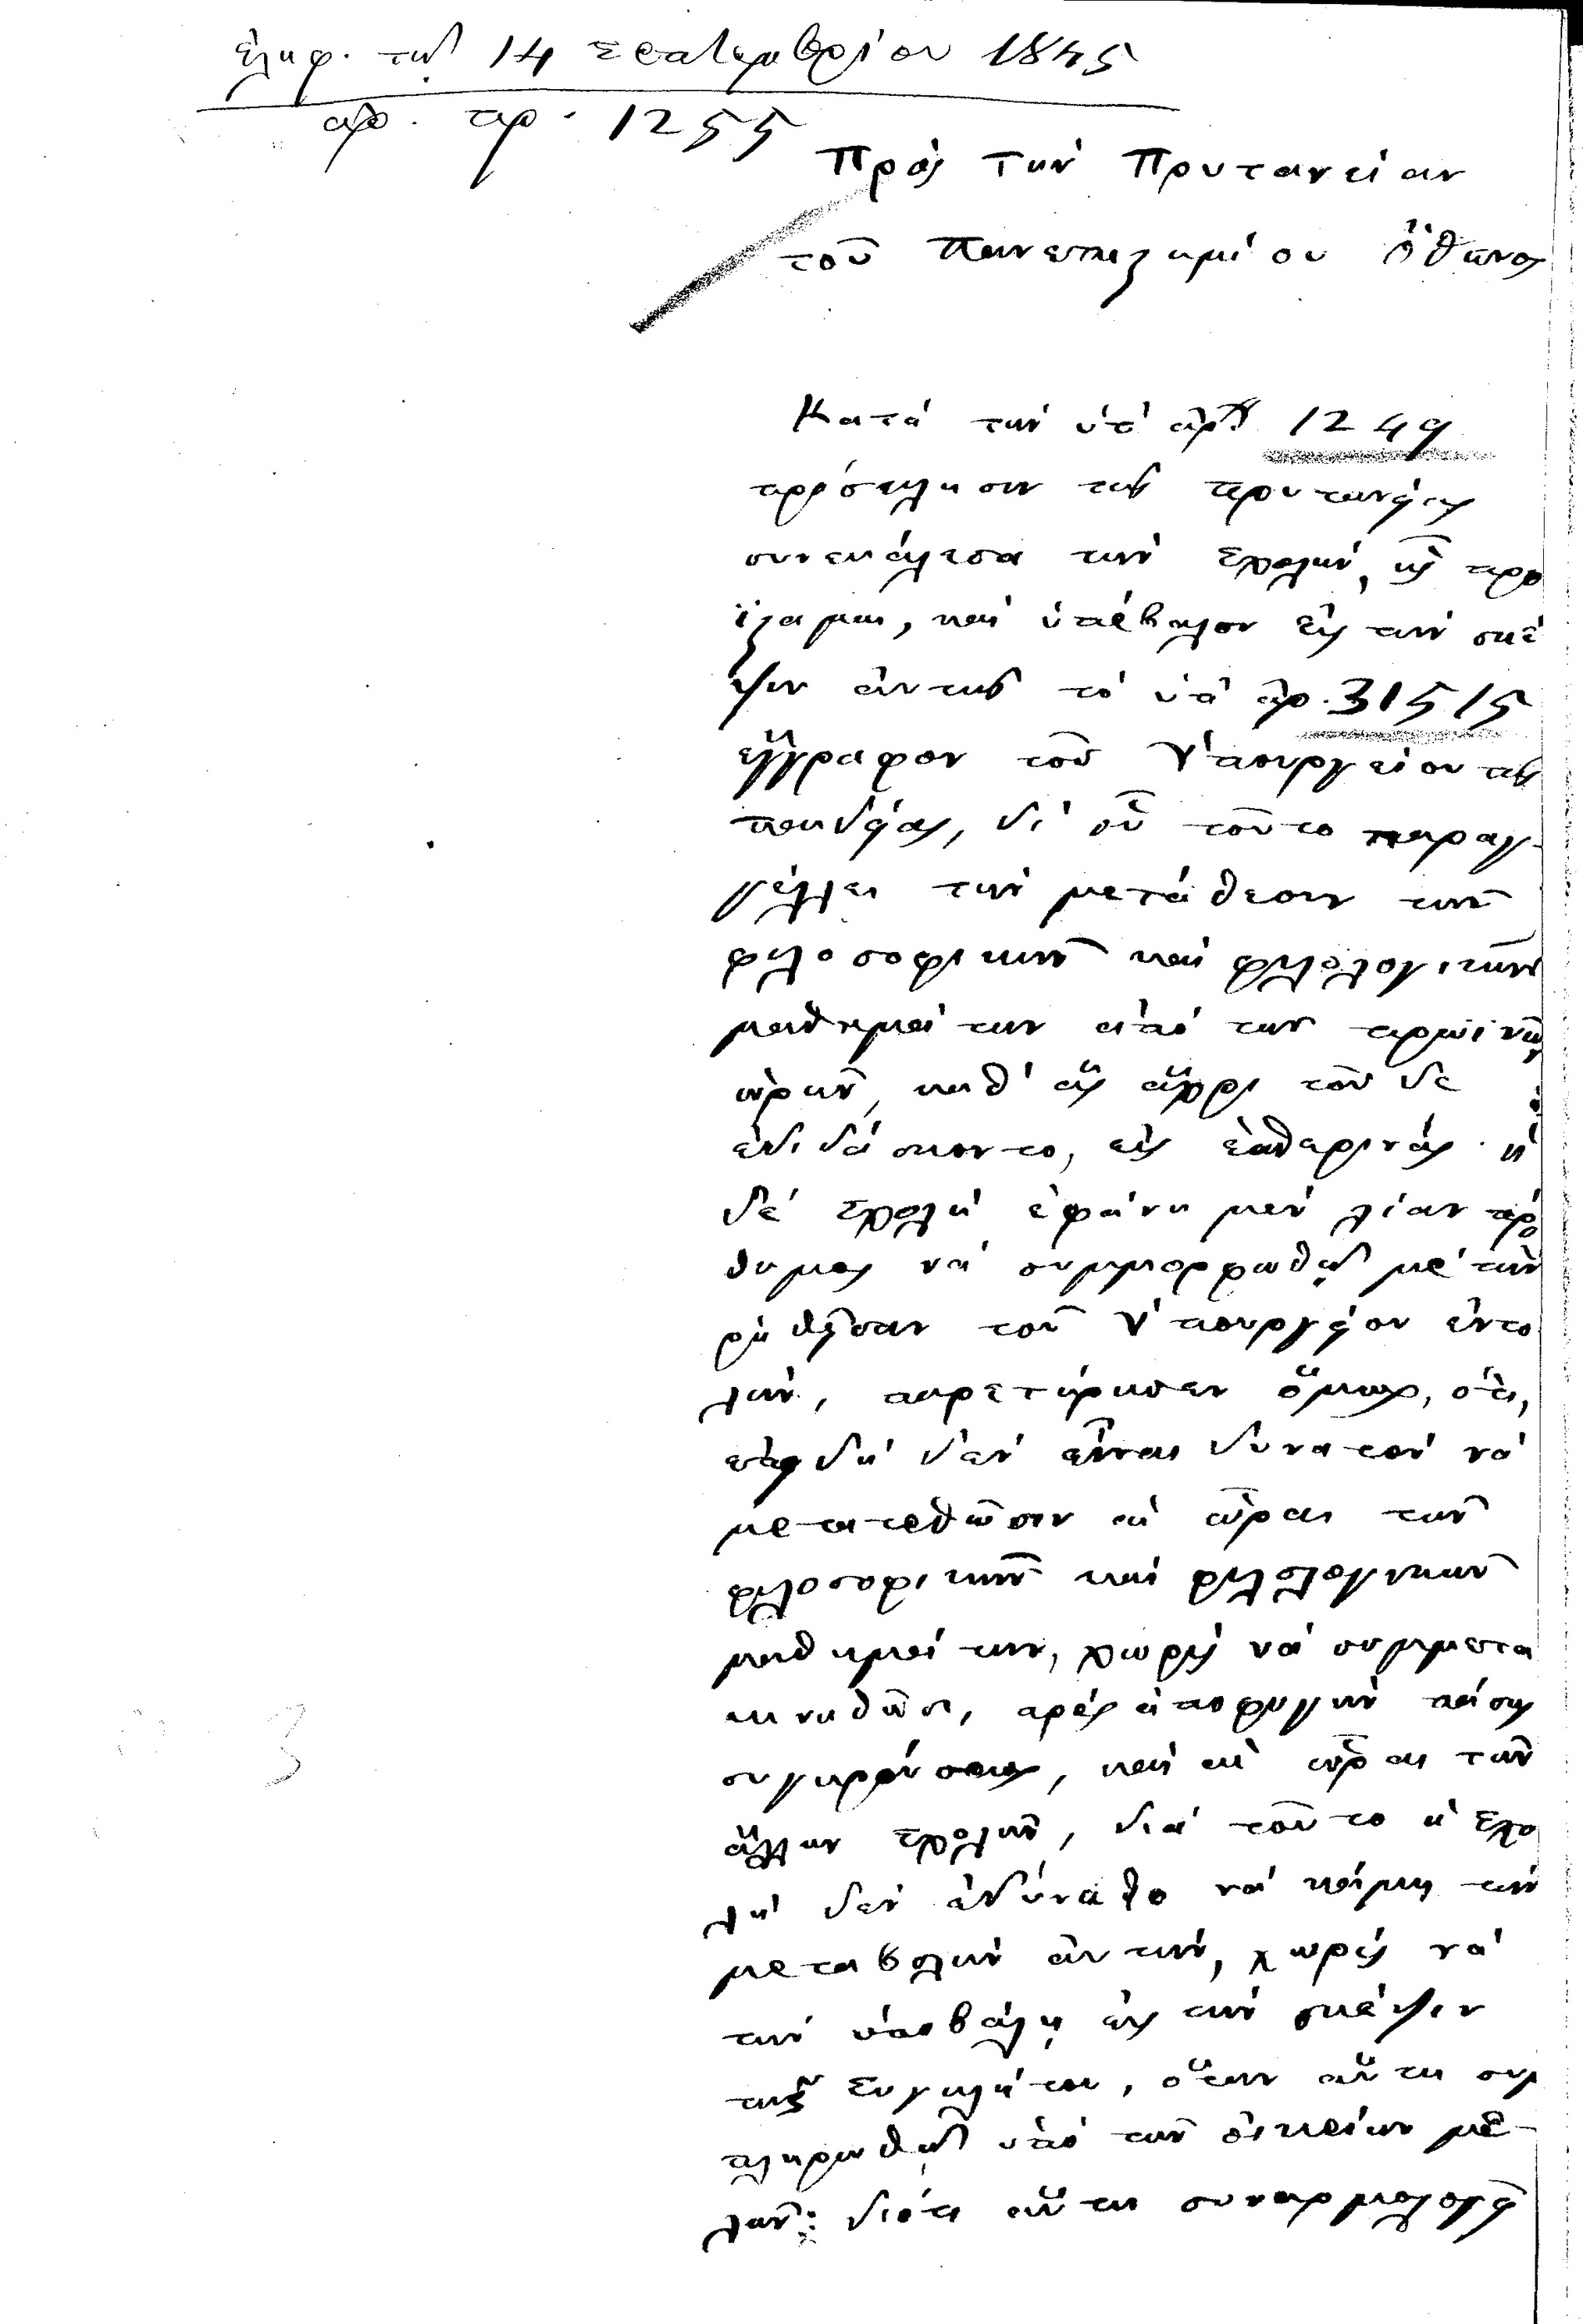 ἐλήφ. τῇ 14 Σεπτεμβρίου 1845
ἀρ. πρ. 1255
Πρὸς τὴν Πρυτανείαν
τοῦ Πανεπιστημίου Ὄθωνος
Κατὰ τὴν ὑπ' ἀρ. 1249
πρόσκλησιν τῆς πρυτανείας
συνεκάλεσα τὴν Σχολὴν, ἧς προ
ΐσταμαι, καὶ ὑπέβαλον εἰς τὴν σκέ
ψιν αὐτῆς τὸ ὑπ' ἀρ. 31515
ἔγγραφον τοῦ Ὑπουργείου τῆς
παιδείας, δι' οὗ τοῦτο παραγ-
γέλλει τὴν μετάθεσιν τῶν
φιλοσοφικῶν καὶ φιλολογικῶν
μαθημάτων ἀπὸ τῶν πρωϊνῶν
ὡρῶν, καθ' ἃς ἄχρι τοῦδε
ἐδιδάσκοντο, εἰς ἑσπερινάς· ἡ
δὲ Σχολὴ ἐφάνη μὲν λίαν πρό
θυμος νὰ συμμορφωθῇ μὲ τὴν
ῥηθεῖσαν τοῦ Ὑπουργείου ἐντο
λὴν, παρετήρησεν ὅμως, ὅτι,
ἐπειδὴ δὲν εἶναι δυνατὸν νὰ
μετατεθῶσιν αἱ ὧραι τῶν
φιλοσοφικῶν καὶ φιλολογικῶν
μαθημάτων, χωρὶς νὰ συμμετα
κινηθῶσι, πρὸς ἀποφυγὴν πάσης
συγκρούσεως, καὶ αἱ ὧραι τῶν
ἄλλων Σχολῶν, διὰ τοῦτο ἡ Σχο
λὴ δὲν ἐδύνατο νὰ κάμῃ τὴν
μεταβολὴν αὐτὴν, χωρὶς νὰ
τὴν ὑποβάλῃ εἰς τὴν σκέψιν
τῆς Συγκλήτου, ὅταν αὕτη συμ
πληρωθῇ ὑπὸ τῶν οἰκείων με-
λῶν: διότι αὕτη συναρμολογεῖ